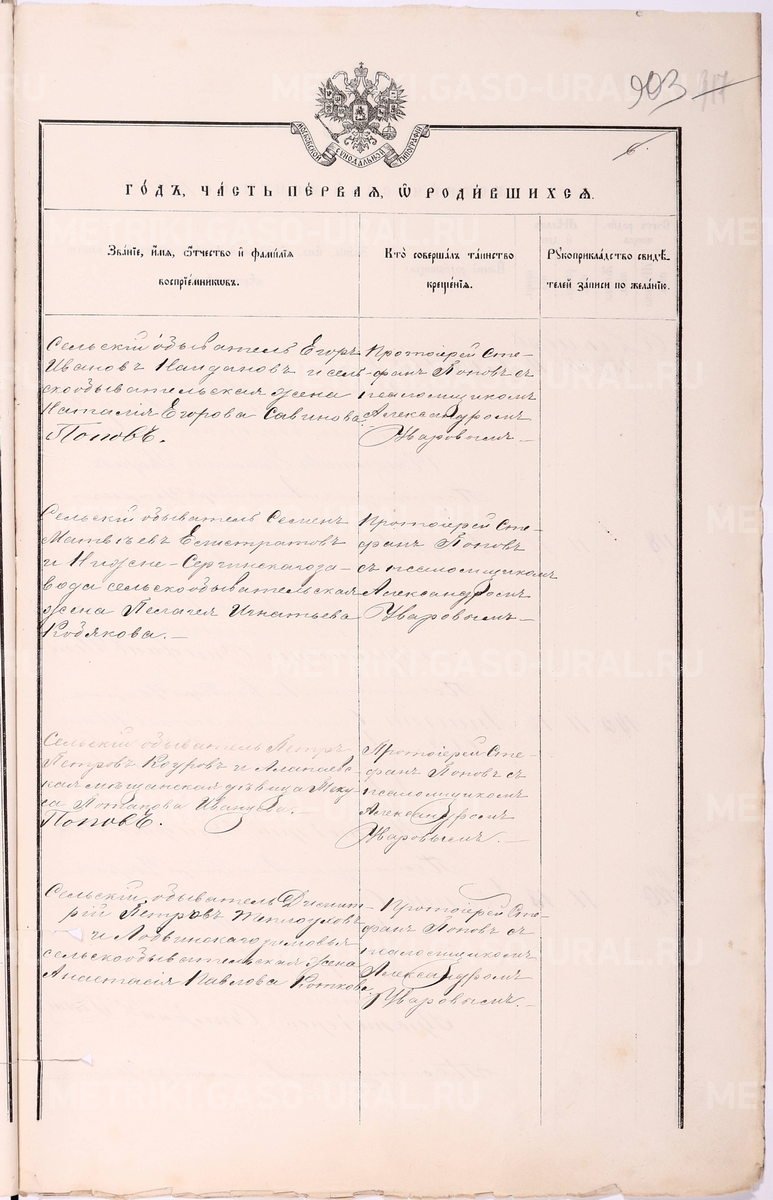 903
МОСКОВСКОЙ СѴНОДАЛЬНОЙ ТИПОГРАФІИ
ГО́ДЪ, ЧА́СТЬ ПЕ́РВАЯ, Ѡ РОДИ́ВШИХСЯ.
Зва́нїе, и́мѧ, ѻ҆́тчество и҆ фами́лїѧ
воспрїе́мниковъ.
Кто̀ соверша́лъ та́инство
креще́нїѧ.
Рꙋкоприкла́дство свидѣ́-
телей за́писи по жела́нїю.
Сельскій обыватель Егоръ
Ивановъ Найдановъ и сель-
скообывательская жена
Наталія Егорова Савинова.
Поповъ.
Протоіерей Сте-
фанъ Поповъ съ
псаломщикомъ
Александромъ
Уваровымъ.—
Сельскій обыватель Семенъ
Матвѣевъ Елистратовъ
и Нижне-Сергинскаго за-
вода сельскообывательская
жена Пелагея Игнатьева
Кобякова.—
Протоіерей Сте-
фанъ Поповъ
съ псаломщикомъ
Александромъ
Уваровымъ.—
Сельскій обыватель Петръ
Петровъ и Алапаевс-
кая мѣщанская дѣвица
Потапова
Поповъ.
Протоіерей Сте-
фанъ Поповъ съ
псаломщикомъ
Александромъ
Уваровымъ.—
Сельскій обыватель Димит-
рій Петровъ Теплоуховъ
и Лобвинскаго зимовья
сельскообывательская жена
Анастасія Павлова Коткова.
Протоіерей Сте-
фанъ Поповъ съ
псаломщикомъ
Александромъ
Уваровымъ.—
METRIKI.GASO-URAL.RU